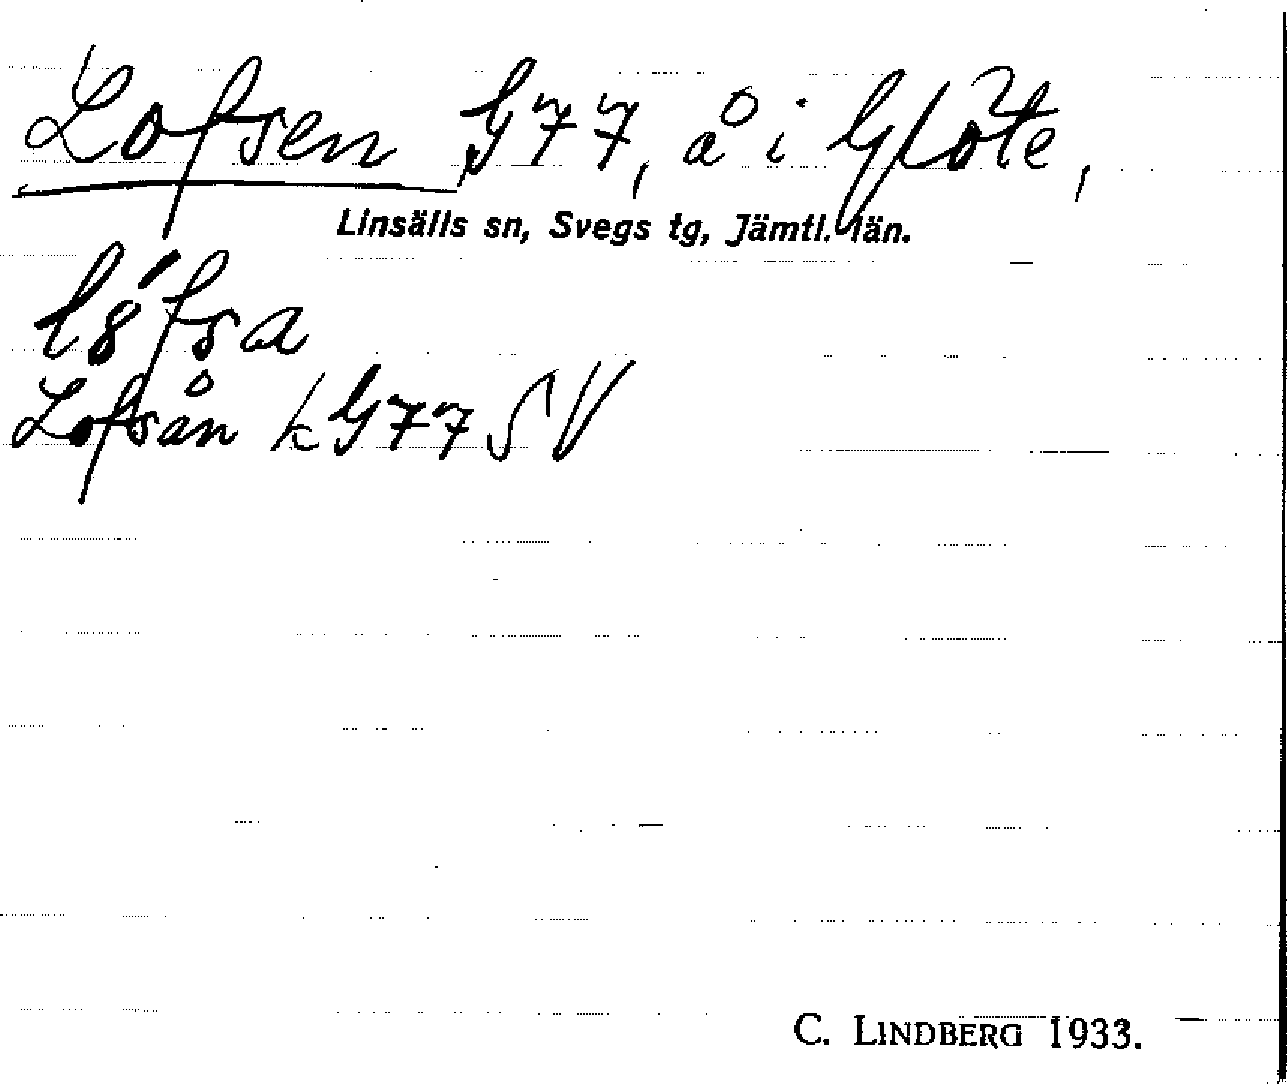 Lofsen G77, å i Glöte,
Linsälls sn, Svegs tg, Jämtl. län.
Lofsån k G77 SV
C. LINDBERG 1933.